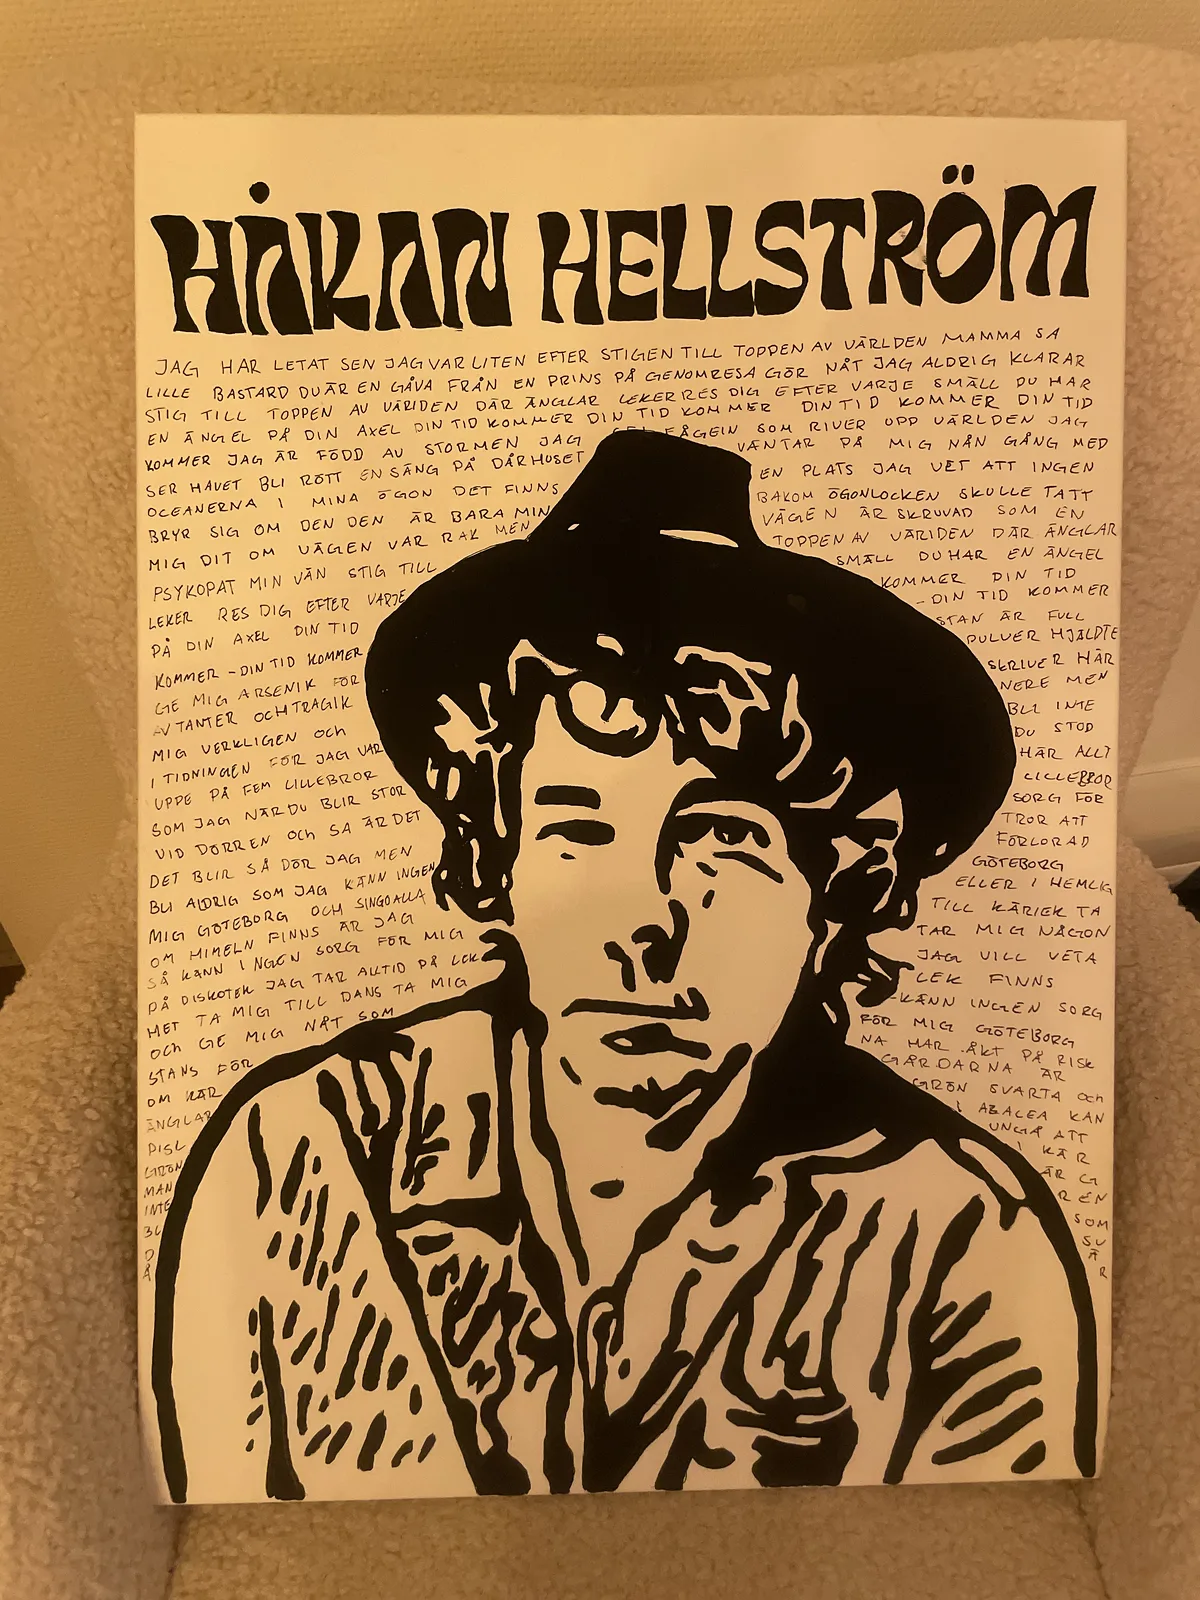 HÅKAN HELLSTRÖM
JAG HAR LETAT SEN JAG VAR LITEN EFTER STIGEN TILL TOPPEN AV VÄRLDEN MAMMA SA
LILLE BASTARD DU ÄR EN GÅVA FRÅN EN PRINS PÅ GENOMRESA GÖR NÅT JAG ALDRIG KLARAR
STIG TILL TOPPEN AV VÄRLDEN DÄR ÄNGLAR LEKER RES DIG EFTER VARJE SMÄLL DU HAR
EN ÄNGEL PÅ DIN AXEL DIN TID KOMMER DIN TID KOMMER DIN TID KOMMER DIN TID
KOMMER JAG ÄR FÖDD AV STORMEN JAG FÅGELN SOM RIVER UPP VÄRLDEN JAG
SER HAVET BLI RÖTT EN SÄNG PÅ DÅRHUSET VÄNTAR PÅ MIG NÅN GÅNG MED
OCEANERNA I MINA ÖGON DET FINNS EN PLATS JAG VET ATT INGEN
BRYR SIG OM DEN DEN ÄR BARA MIN BAKOM ÖGONLOCKEN SKULLE TATT
MIG DIT OM VÄGEN VAR RAK MEN VÄGEN ÄR SKRUVAD SOM EN
PSYKOPAT MIN VÄN STIG TILL TOPPEN AV VÄRLDEN DÄR ÄNGLAR
LEKER RES DIG EFTER VARJE SMÄLL DU HAR EN ÄNGEL
PÅ DIN AXEL DIN TID KOMMER DIN TID
KOMMER - DIN TID KOMMER - DIN TID KOMMER
GE MIG ARSENIK FÖR STAN ÄR FULL
AV TANTER OCH TRAGIK PULVER HJÄLPTE
MIG VERKLIGEN OCH SKRIVER HÄR
I TIDNINGEN FÖR JAG VAR NERE MEN
UPPE PÅ FEM LILLEBROR BLI INTE
SOM JAG NÄR DU BLIR STOR DU STOD
VID DÖRREN OCH SA ÄR DET HÄR ALLT
DET BLIR SÅ DÖR JAG MEN LILLEBROR
BLI ALDRIG SOM JAG KÄNN INGEN SORG FÖR
MIG GÖTEBORG OCH SINGOALLA TROR ATT
OM HIMELN FINNS ÄR JAG FÖRLORAD
SÅ KÄNN INGEN SORG FÖR MIG GÖTEBORG
PÅ DISKOTEK JAG TAR ALLTID PÅ LEK ELLER I HEMLIG
HET TA MIG TILL DANS TA MIG TILL KÄRLEK TA
OCH GE MIG NÅT SOM TAR MIG NÅGON
STANS FÖR JAG VILL VETA
OM KÄR LEK FINNS
ÄNGLAR - KÄNN INGEN SORG
FÖR MIG GÖTEBORG
NA HAR ÅKT PÅ RISK
GÅRDARNA ÄR
GRÖN SVARTA OCH
MAN KAN
INTE UNGÅ ATT
BL I KÄR
D ÄR G
Å R EN
SOM
SV
Ä
R